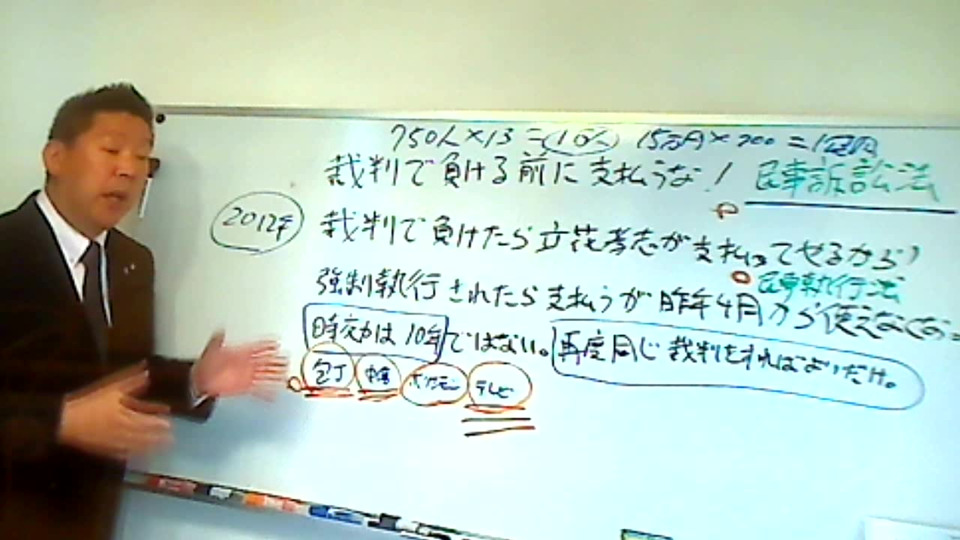 750人×13=10人 15万円×700=1億円
裁判で負ける前に支払うな! 民事訴訟法
2012年 裁判で負けたら立花孝志が支払ってやるから!
民事執行法
強制執行されたら支払うが昨年4月から使えなくなっ
時効は10年ではない。再度同じ裁判をすればよいだけ。
包丁 ポケモン テレビ